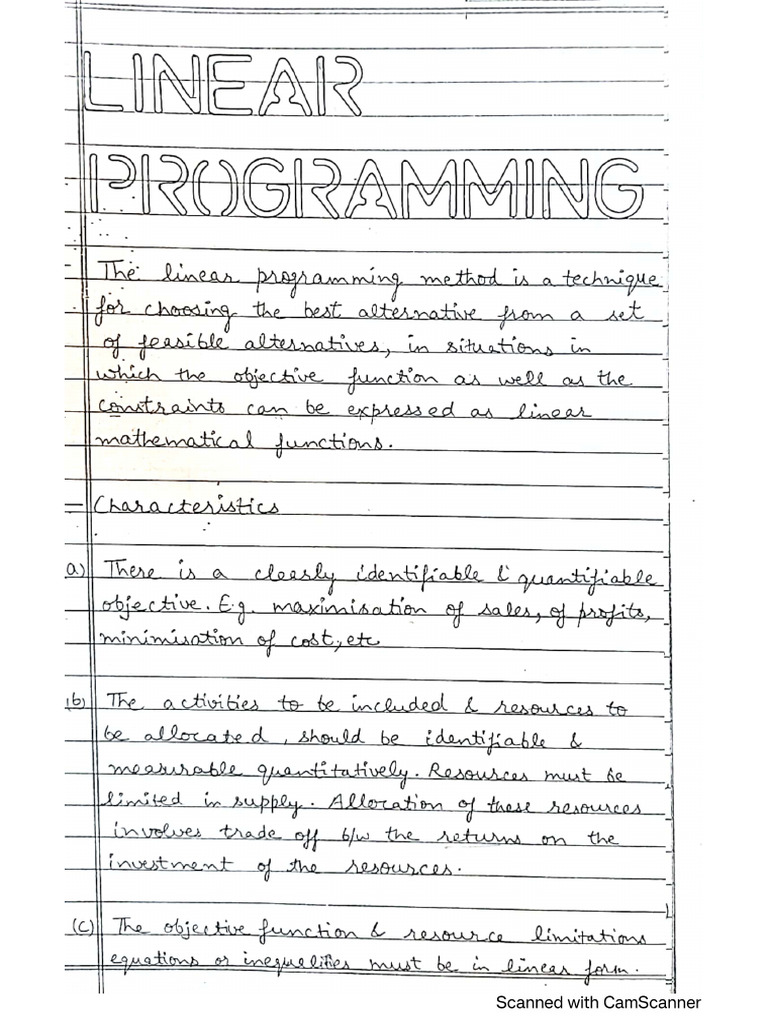 LINEAR
PROGRAMMING
- The linear programming method is a technique
for choosing the best alternative from a set
of feasible alternatives, in situations in
which the objective function as well as the
constraints can be expressed as linear
mathematical functions.
- Characteristics
a) There is a clearly identifiable & quantifiable
objective. E.g. maximisation of sales, of profits,
minimisation of cost, etc
(b) The activities to be included & resources to
be allocated, should be identifiable &
measurable quantitatively. Resources must be
limited in supply. Allocation of these resources
involves trade off b/w the returns on the
investment of the resources.
(C) The objective function & resource limitations
equations or inequelities must be in linear form.
Scanned with CamScanner